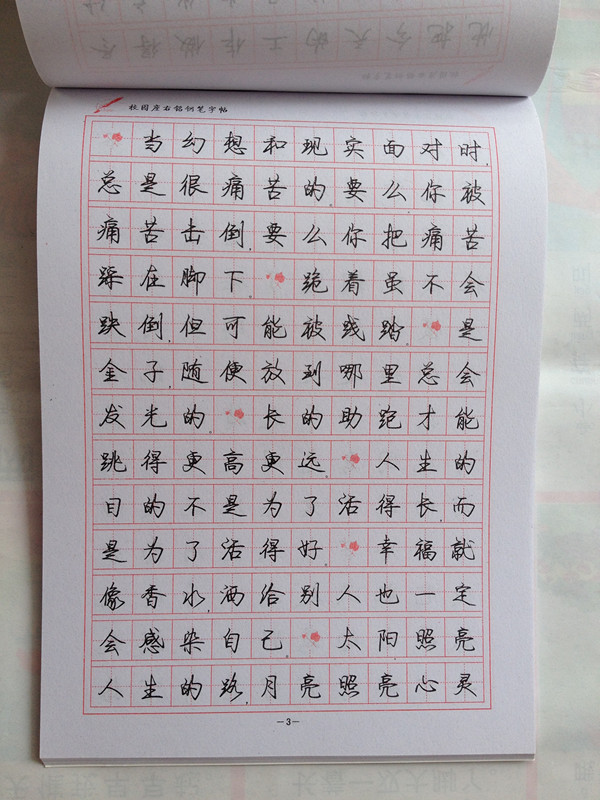 忱把今天的工作做得尽
校园座右铭钢笔字帖
当幻想和现实面对时,
总是很痛苦的.要么你被
痛苦击倒.要么你把痛苦
踩在脚下。跪着虽不会
跌倒.但可能被践踏。是
金子.随便放到哪里总会
发光的。长的助跑才能
跳得更高更远。人生的
目的不是为了活得长.而
是为了活得好。幸福就
像香水.洒给别人也一定
会感染自己。太阳照亮
人生的路.月亮照亮心灵
—3—